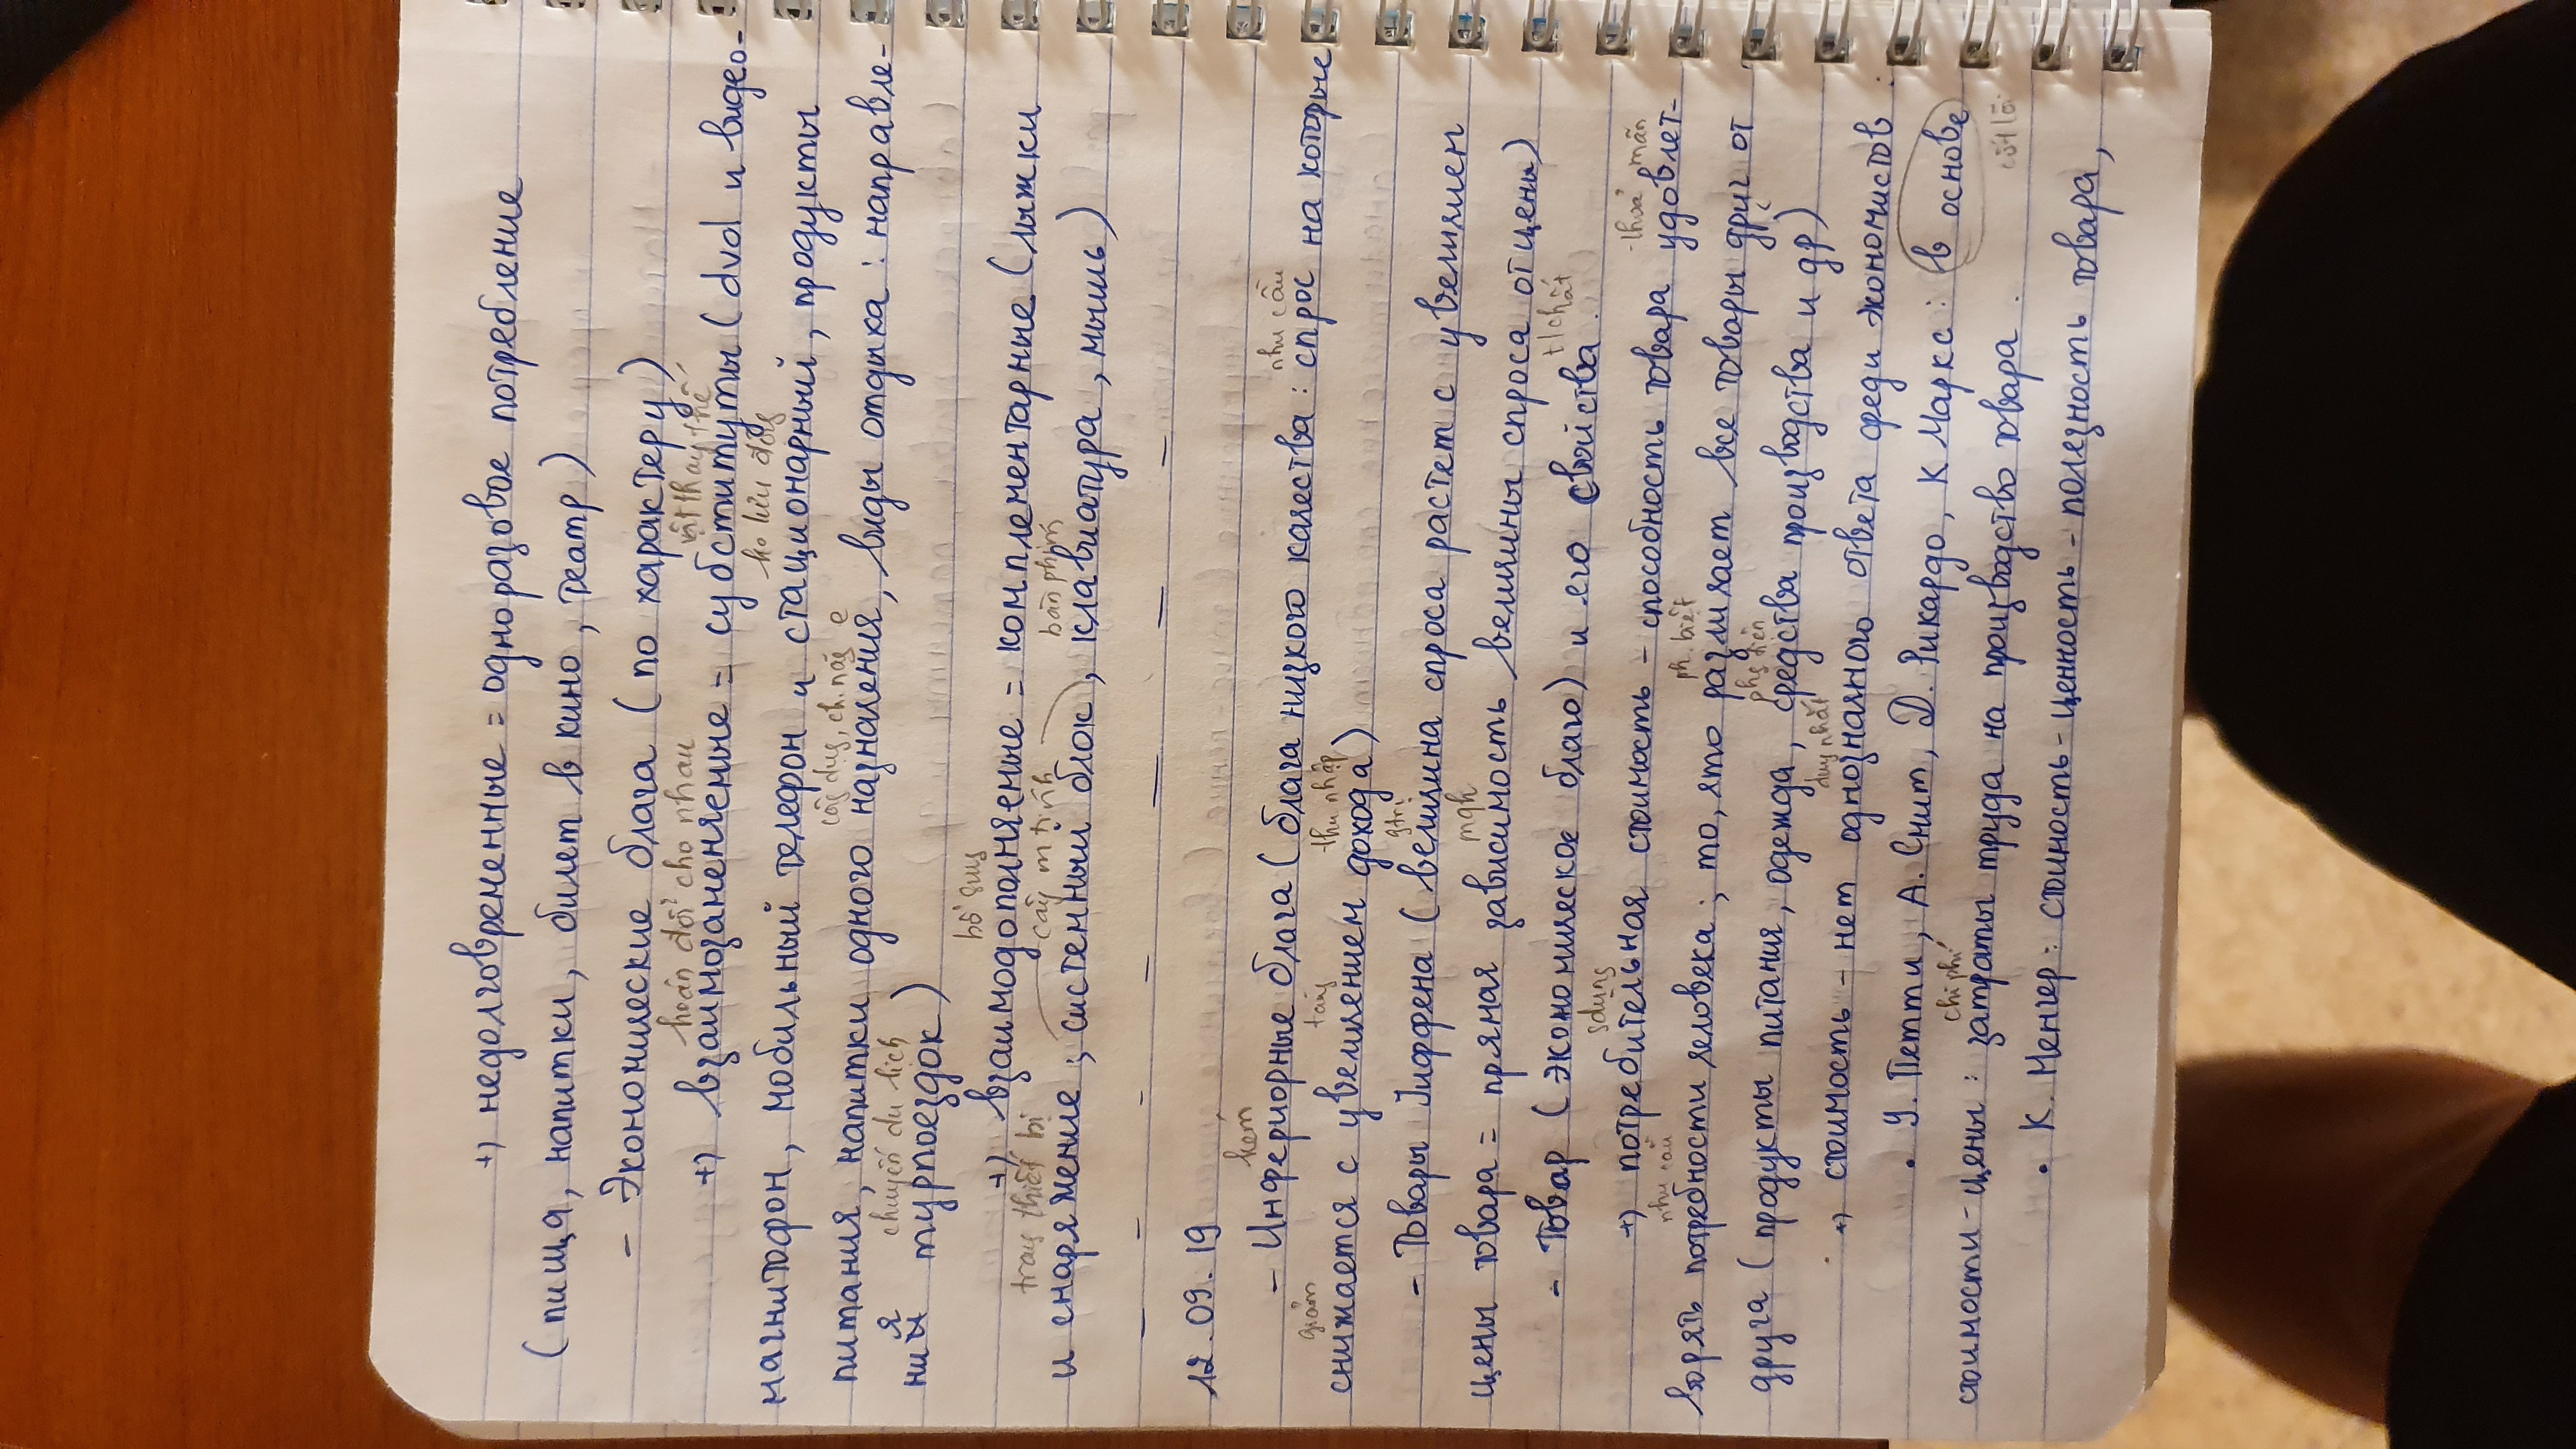 +) недолговременные = одноразовое потребление
(пища, напитки, билет в кино, театр)
- Экономические блага (по характеру)
hoán đổi cho nhau vật thay thế
+) взаимозаменяемые = субституты (dvd и видео-
ko lưu động
магнитофон, мобильный телефон и стационарный, продукты
công dụng, ch.năng
питания, напитки одного назначения, виды отдыха: направле-
chuyến du lịch
ний турпоездок)
bổ sung
+) взаимодополняемые = комплементарные (лыжки
trang thiết bị cây m.tính bàn phím
и снаряжение; системный блок, клавиатура, мышь)
12.09.19
kém
- Инфериорные блага (блага низкого качества: спрос на которые
giảm tăng thu nhập nhu cầu
снижается с увеличением дохода)
gtrị
- Товары Гиффена (величина спроса растет с увеличием
mqh
цены товара = прямая зависимость величины спроса от цены)
t/chất
- Товар (экономическое благо) и его свойства.
sdụng
+) потребительная стоимость - способность товара удовлет-
nhu cầu ph.biệt thỏa mãn
ворять потребности человека; то, что различает все товары друг от
phg tiện
друга (продукты питания, одежда, средства производства и др)
duy nhất
+) стоимость - нет однозначного ответа среди экономистов.
• У. Петти, А. Смит, Д. Рикардо, К Маркс: в основе
chi phí cốt lõi
стоимости - цены: затраты труда на производство товара.
• К. Менгер: стоимость - ценность - полезность товара,